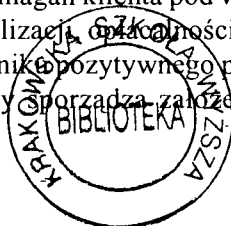 magań klienta pod w
lizacji, opłacalności
niku pozytywnego p
y sporządza założe
KRAKOWSKA SZKOŁA WYŻSZA
BIBLIOTEKA